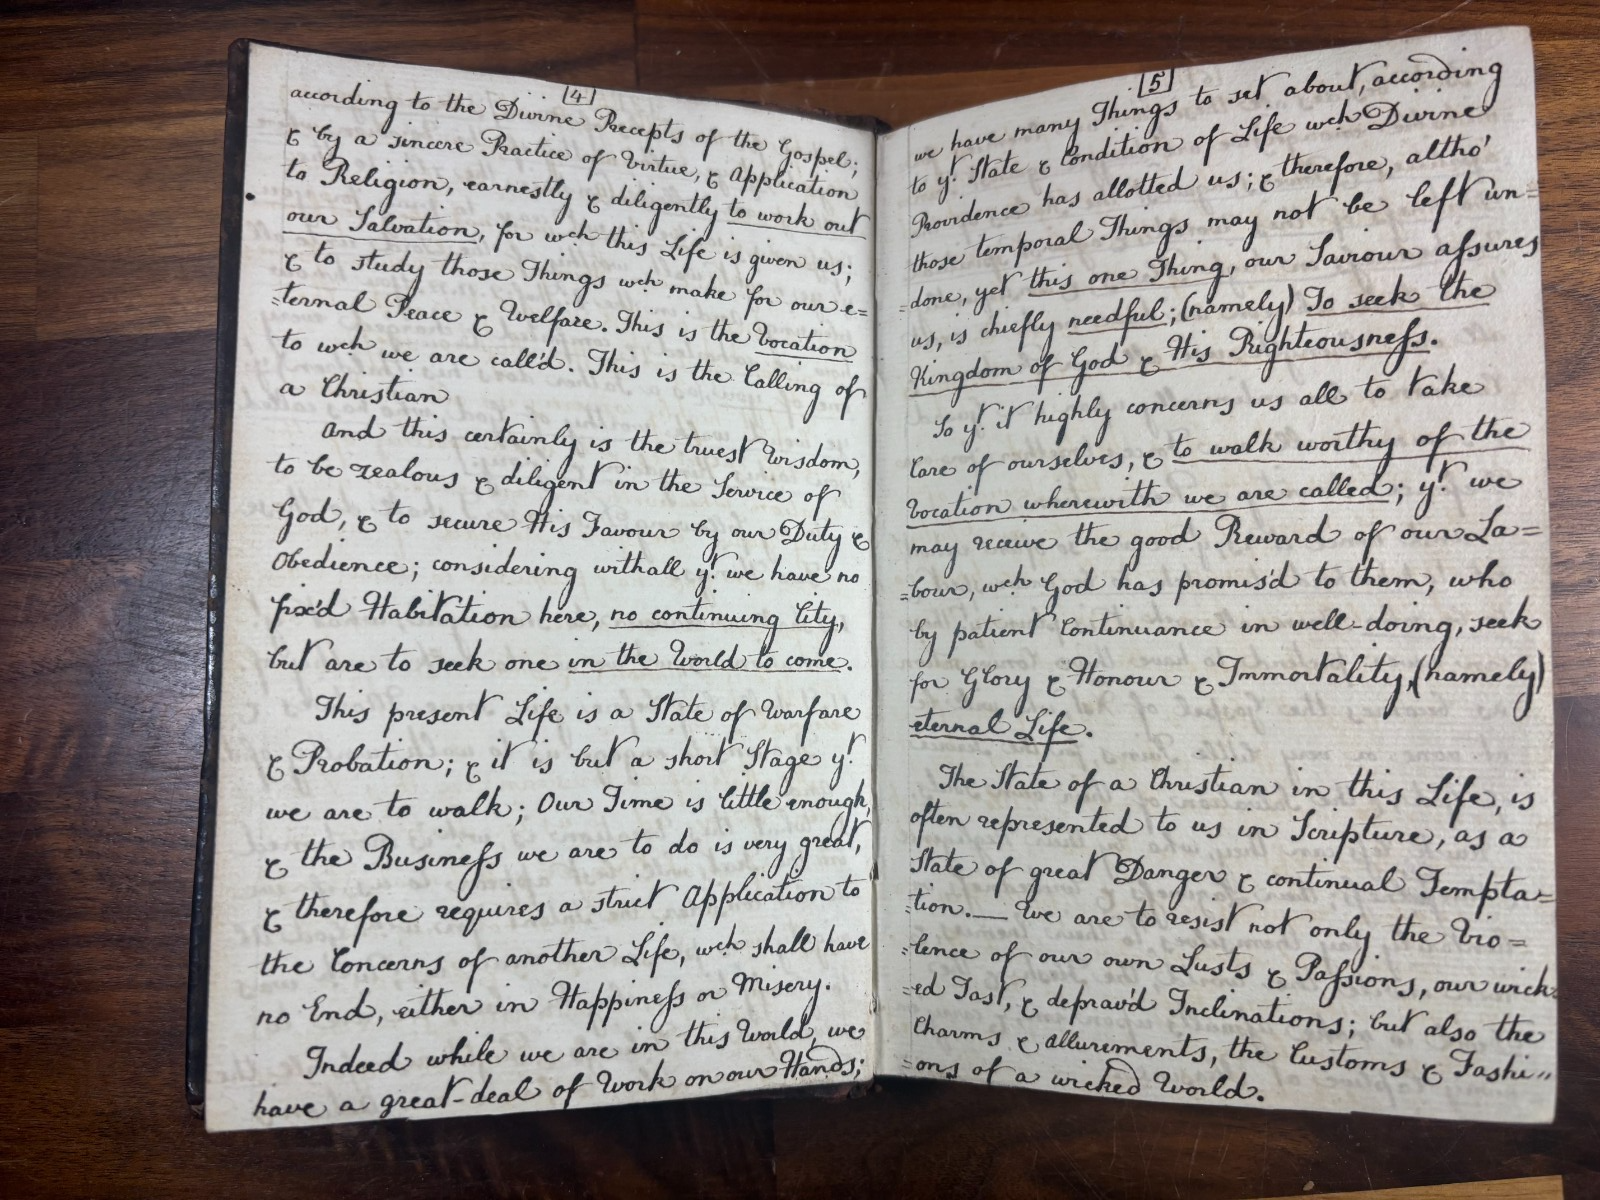 4
according to the Divine Precepts of the Gospel;
& by a sincere Practice of Virtue, & Application
to Religion, earnestly & diligently to work out
our Salvation, for wch this Life is given us;
& to study those Things wch make for our e=
=ternal Peace & Welfare. This is the Vocation
to wch we are call'd. This is the Calling of
a Christian
And this certainly is the truest Wisdom,
to be zealous & diligent in the Service of
God, & to secure His Favour by our Duty &
Obedience; considering withall yt. we have no
fix'd Habitation here, no continuing City,
but are to seek one in the World to come.
This present Life is a State of Warfare
& Probation; & it is but a short Stage yt.
we are to walk; Our Time is little enough,
& the Busineſs we are to do is very great,
& therefore requires a strict Application to
the Concerns of another Life, wch shall have
no End, either in Happineſs or Misery.
Indeed while we are in this World, we
have a great-deal of Work on our Hands;
5
we have many Things to set about, according
to yt. State & Condition of Life wch Divine
Providence has allotted us; & therefore, altho'
those temporal Things may not be left un=
=done, yet this one Thing, our Saviour aſsures
us, is chiefly needful; (namely) To seek the
Kingdom of God & His Righteousneſs.
So yt. it highly concerns us all to take
Care of ourselves, & to walk worthy of the
Vocation wherewith we are called; yt. we
may receive the good Reward of our La=
=bour, wch God has promis'd to them, who
by patient Continuance in well-doing, seek
for Glory & Honour & Immortality, (namely)
eternal Life.
The State of a Christian in this Life, is
often represented to us in Scripture, as a
State of great Danger & continual Tempta=
=tion. — We are to resist not only the Vio=
=lence of our own Lusts & Paſsions, our wick=
=ed Tast, & deprav'd Inclinations; but also the
Charms & allurements, the Customs & Fashi=
=ons of a wicked World.